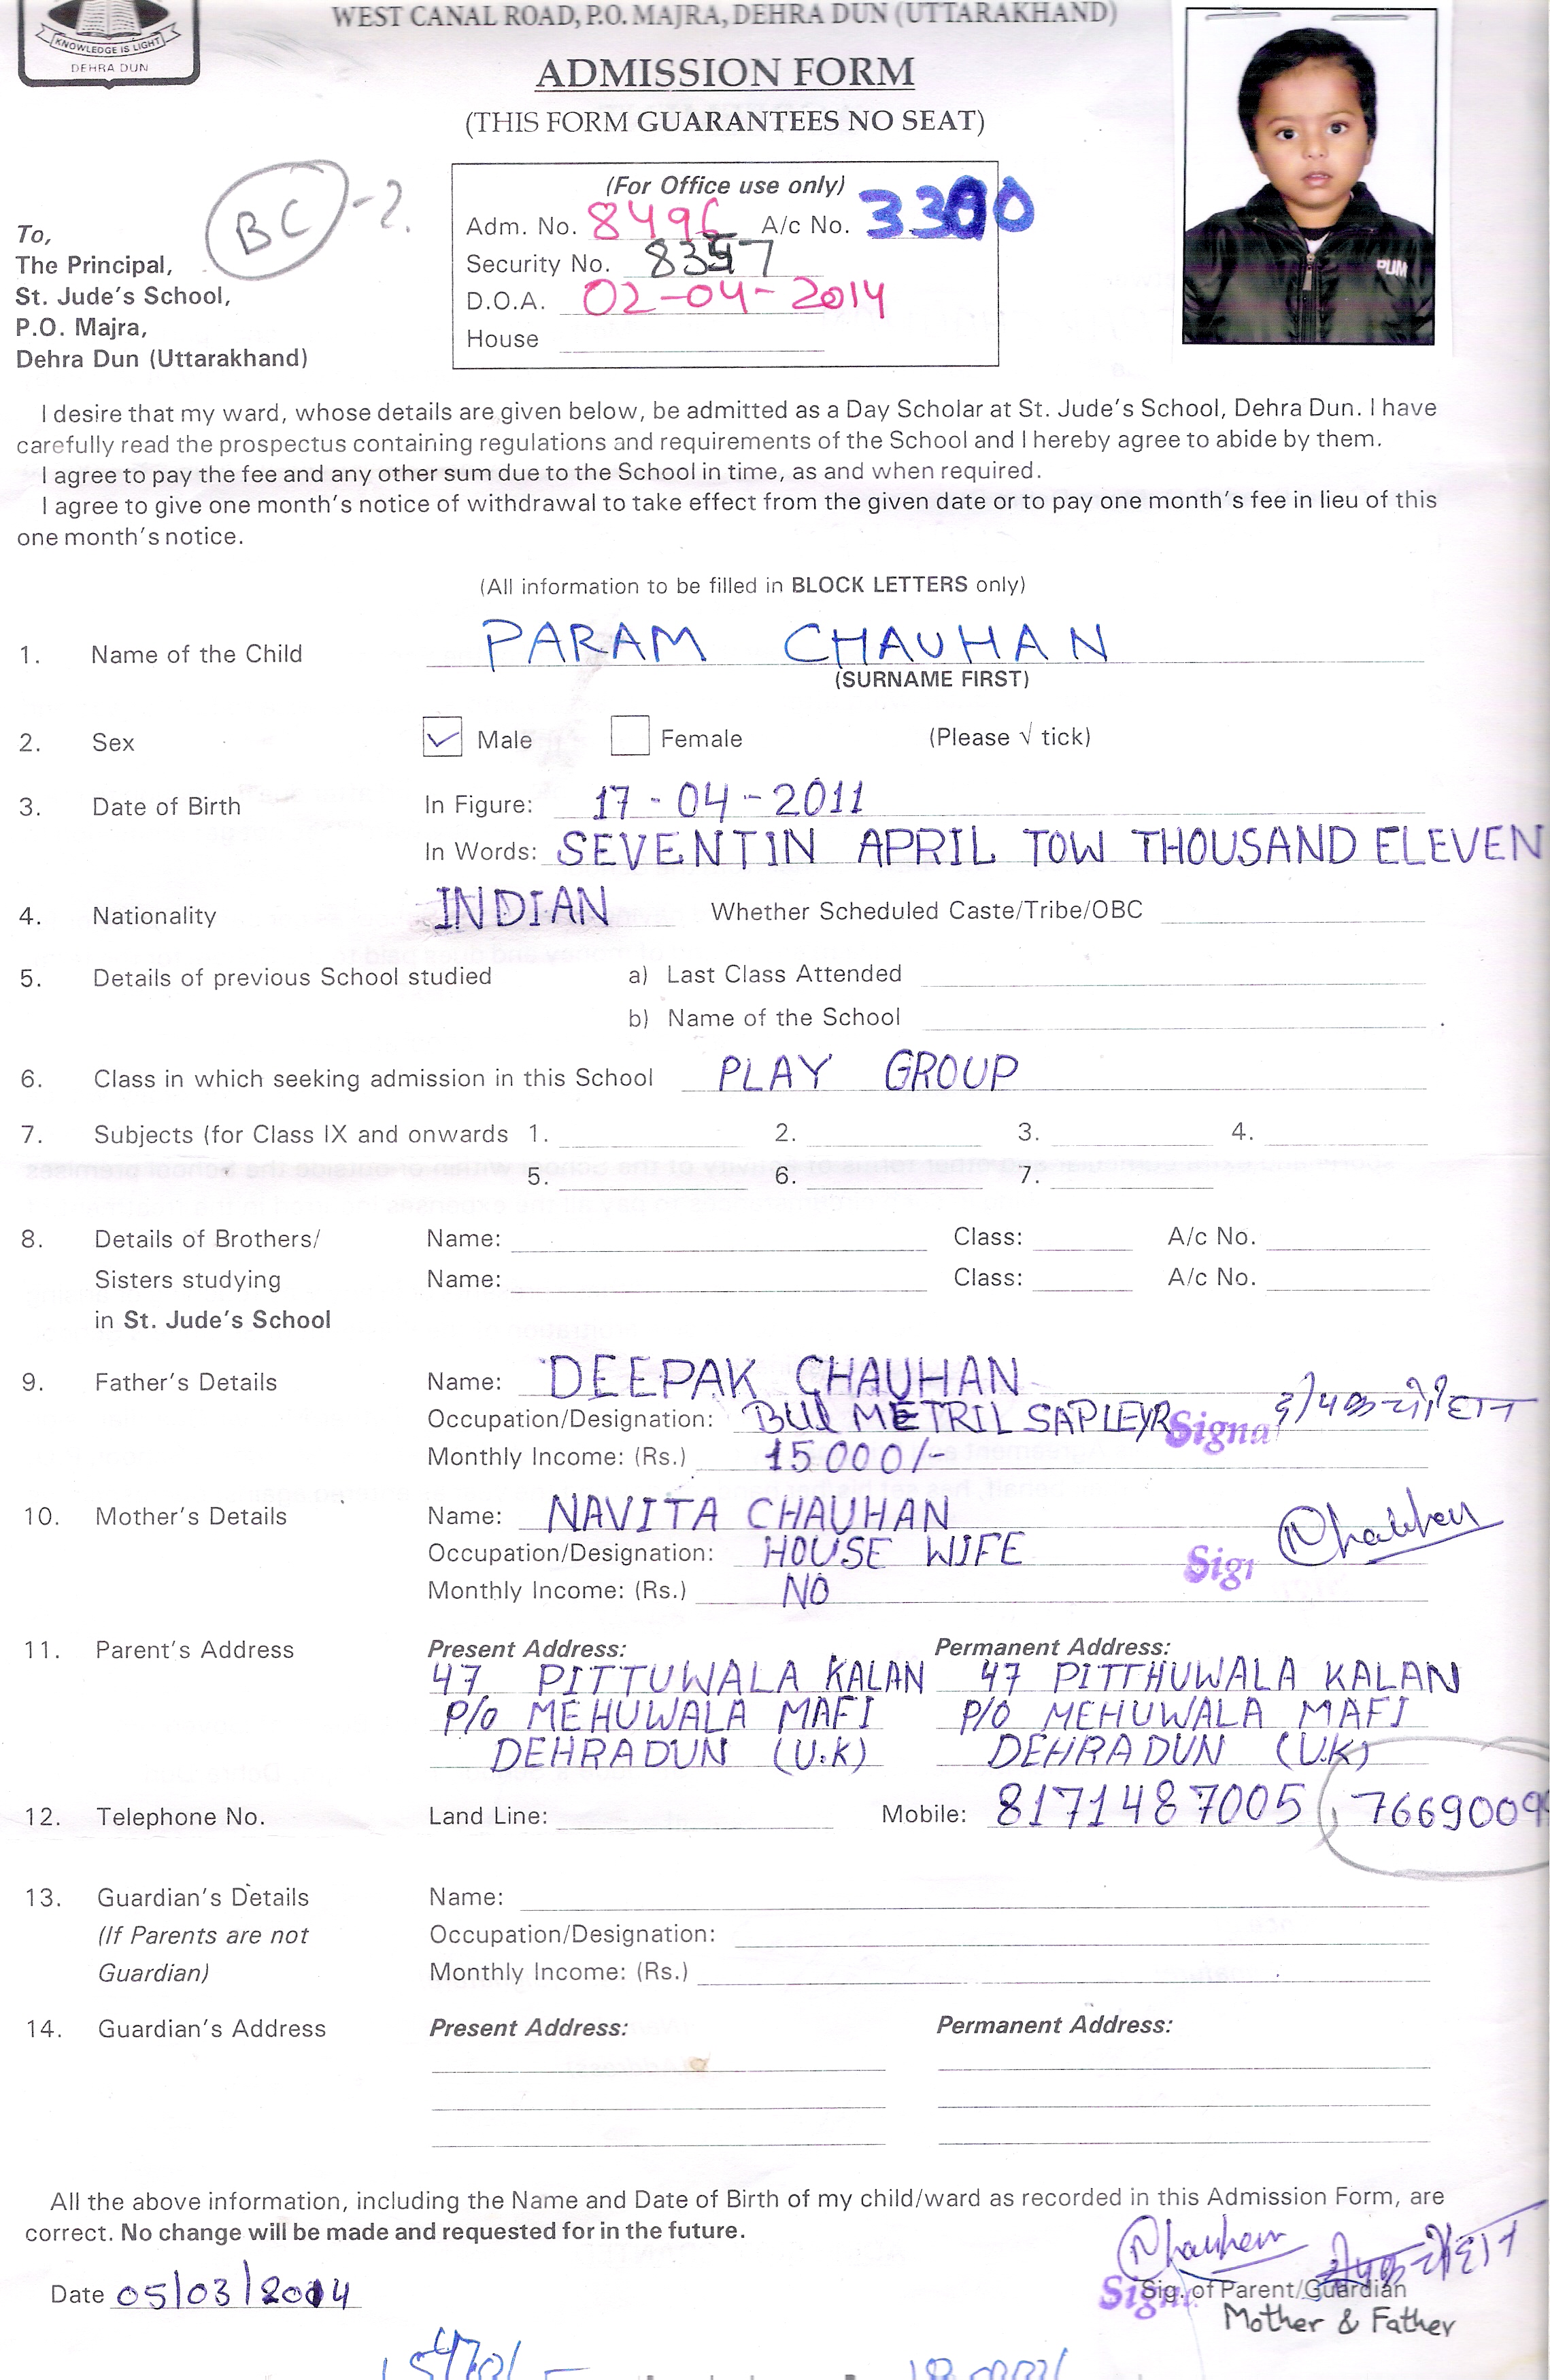 WEST CANAL ROAD, P.O. MAJRA, DEHRA DUN (UTTARAKHAND)
KNOWLEDGE IS LIGHT
DEHRA DUN
ADMISSION FORM
(THIS FORM GUARANTEES NO SEAT)
BC -2.
(For Office use only)
Adm. No. 8496 A/c No. 3300
Security No. 8357
D.O.A. 02-04-2014
House
To,
The Principal,
St. Jude's School,
P.O. Majra,
Dehra Dun (Uttarakhand)
PUM
I desire that my ward, whose details are given below, be admitted as a Day Scholar at St. Jude's School, Dehra Dun. I have
carefully read the prospectus containing regulations and requirements of the School and I hereby agree to abide by them.
I agree to pay the fee and any other sum due to the School in time, as and when required.
I agree to give one month's notice of withdrawal to take effect from the given date or to pay one month's fee in lieu of this
one month's notice.
(All information to be filled in BLOCK LETTERS only)
1. Name of the Child PARAM CHAUHAN
(SURNAME FIRST)
2. Sex Male Female (Please √ tick)
3. Date of Birth In Figure: 17-04-2011
In Words: SEVENTIN APRIL TOW THOUSAND ELEVEN
4. Nationality INDIAN Whether Scheduled Caste/Tribe/OBC
5. Details of previous School studied a) Last Class Attended
b) Name of the School
6. Class in which seeking admission in this School PLAY GROUP
7. Subjects (for Class IX and onwards 1. 2. 3. 4.
5. 6. 7.
8. Details of Brothers/ Name: Class: A/c No.
Sisters studying Name: Class: A/c No.
in St. Jude's School
9. Father's Details Name: DEEPAK CHAUHAN
Occupation/Designation: METRIL SAPLEYR Signa दीपक चौहान
Monthly Income: (Rs.) 15000/-
10. Mother's Details Name: NAVITA CHAUHAN
Occupation/Designation: HOUSE WIFE Sign NChauhan
Monthly Income: (Rs.) NO
11. Parent's Address Present Address: Permanent Address:
47 PITTUWALA KALAN 47 PITTHUWALA KALAN
P/o MEHUWALA MAFI P/O MEHUWALA MAFI
DEHRADUN (U.K) DEHRADUN (U.K)
12. Telephone No. Land Line: Mobile: 8171487005, 7669009
13. Guardian's Details Name:
(If Parents are not Occupation/Designation:
Guardian) Monthly Income: (Rs.)
14. Guardian's Address Present Address: Permanent Address:
All the above information, including the Name and Date of Birth of my child/ward as recorded in this Admission Form, are
correct. No change will be made and requested for in the future.
NChauhan दीपक चौहान
Date 05/03/2014 Signa Sig. of Parent/Guardian
Mother & Father